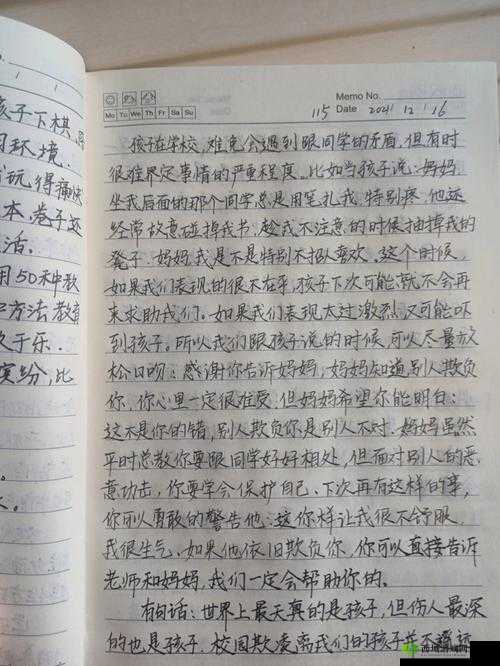 孩子下棋,
环境.
玩得
本,卷子还
活.
用50种教
方法教育
于乐.
缤纷,比
Memo No.
Mo Tu We Th Fr Sa Su
115 Date 2021 12 16
孩子在学校,难免会遇到跟同学的矛盾,但有时
很难界定事情的严重程度。比如当孩子说:妈妈,
坐我后面的那个同学总是用笔扎我,特别疼,他还
经常故意碰掉我书,趁我不注意的时候抽掉我的
凳子,妈妈,我是不是特别不招人喜欢。这个时候,
如果我们表现的很不在乎,孩子下次可能就不会再
来求助我们。如果我们表现太过激烈,又可能吓
到孩子。所以我们跟孩子说的时候,可以尽量放
松口吻:感谢你告诉妈妈,妈妈知道别人欺负
你,你心里一定很难受,但妈妈希望你能明白:
这不是你的错,别人欺负你是别人不对,妈妈虽然
平时总教你要跟同学好好相处,但面对别人的恶
意功击,你要学会保护自己、下次再有这样的事,
你可以勇敢的警告他:这你样让我很不舒服,
我很生气。如果他依旧欺负你,你可以直接告诉
老师和妈妈,我们一定会帮助你的。
有句话:世界上最天真的是孩子,但伤人最深
的也是孩子,校园欺凌离我们的孩子并不遥远